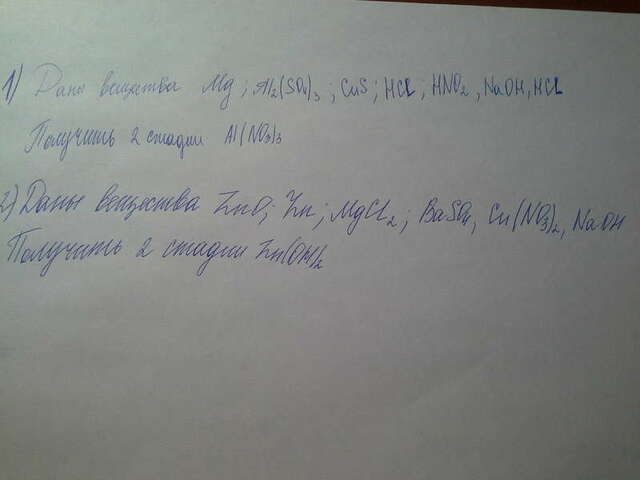 1) Даны вещества Mg; Al2(SO4)3; CuS; HCl; HNO2, NaOH, HCl
Получить 2 стадии Al(NO3)3
2) Даны вещества ZnO; Zn; MgCl2; BaSO4, Cu(NO3)2, NaOH
Получить 2 стадии Zn(OH)2